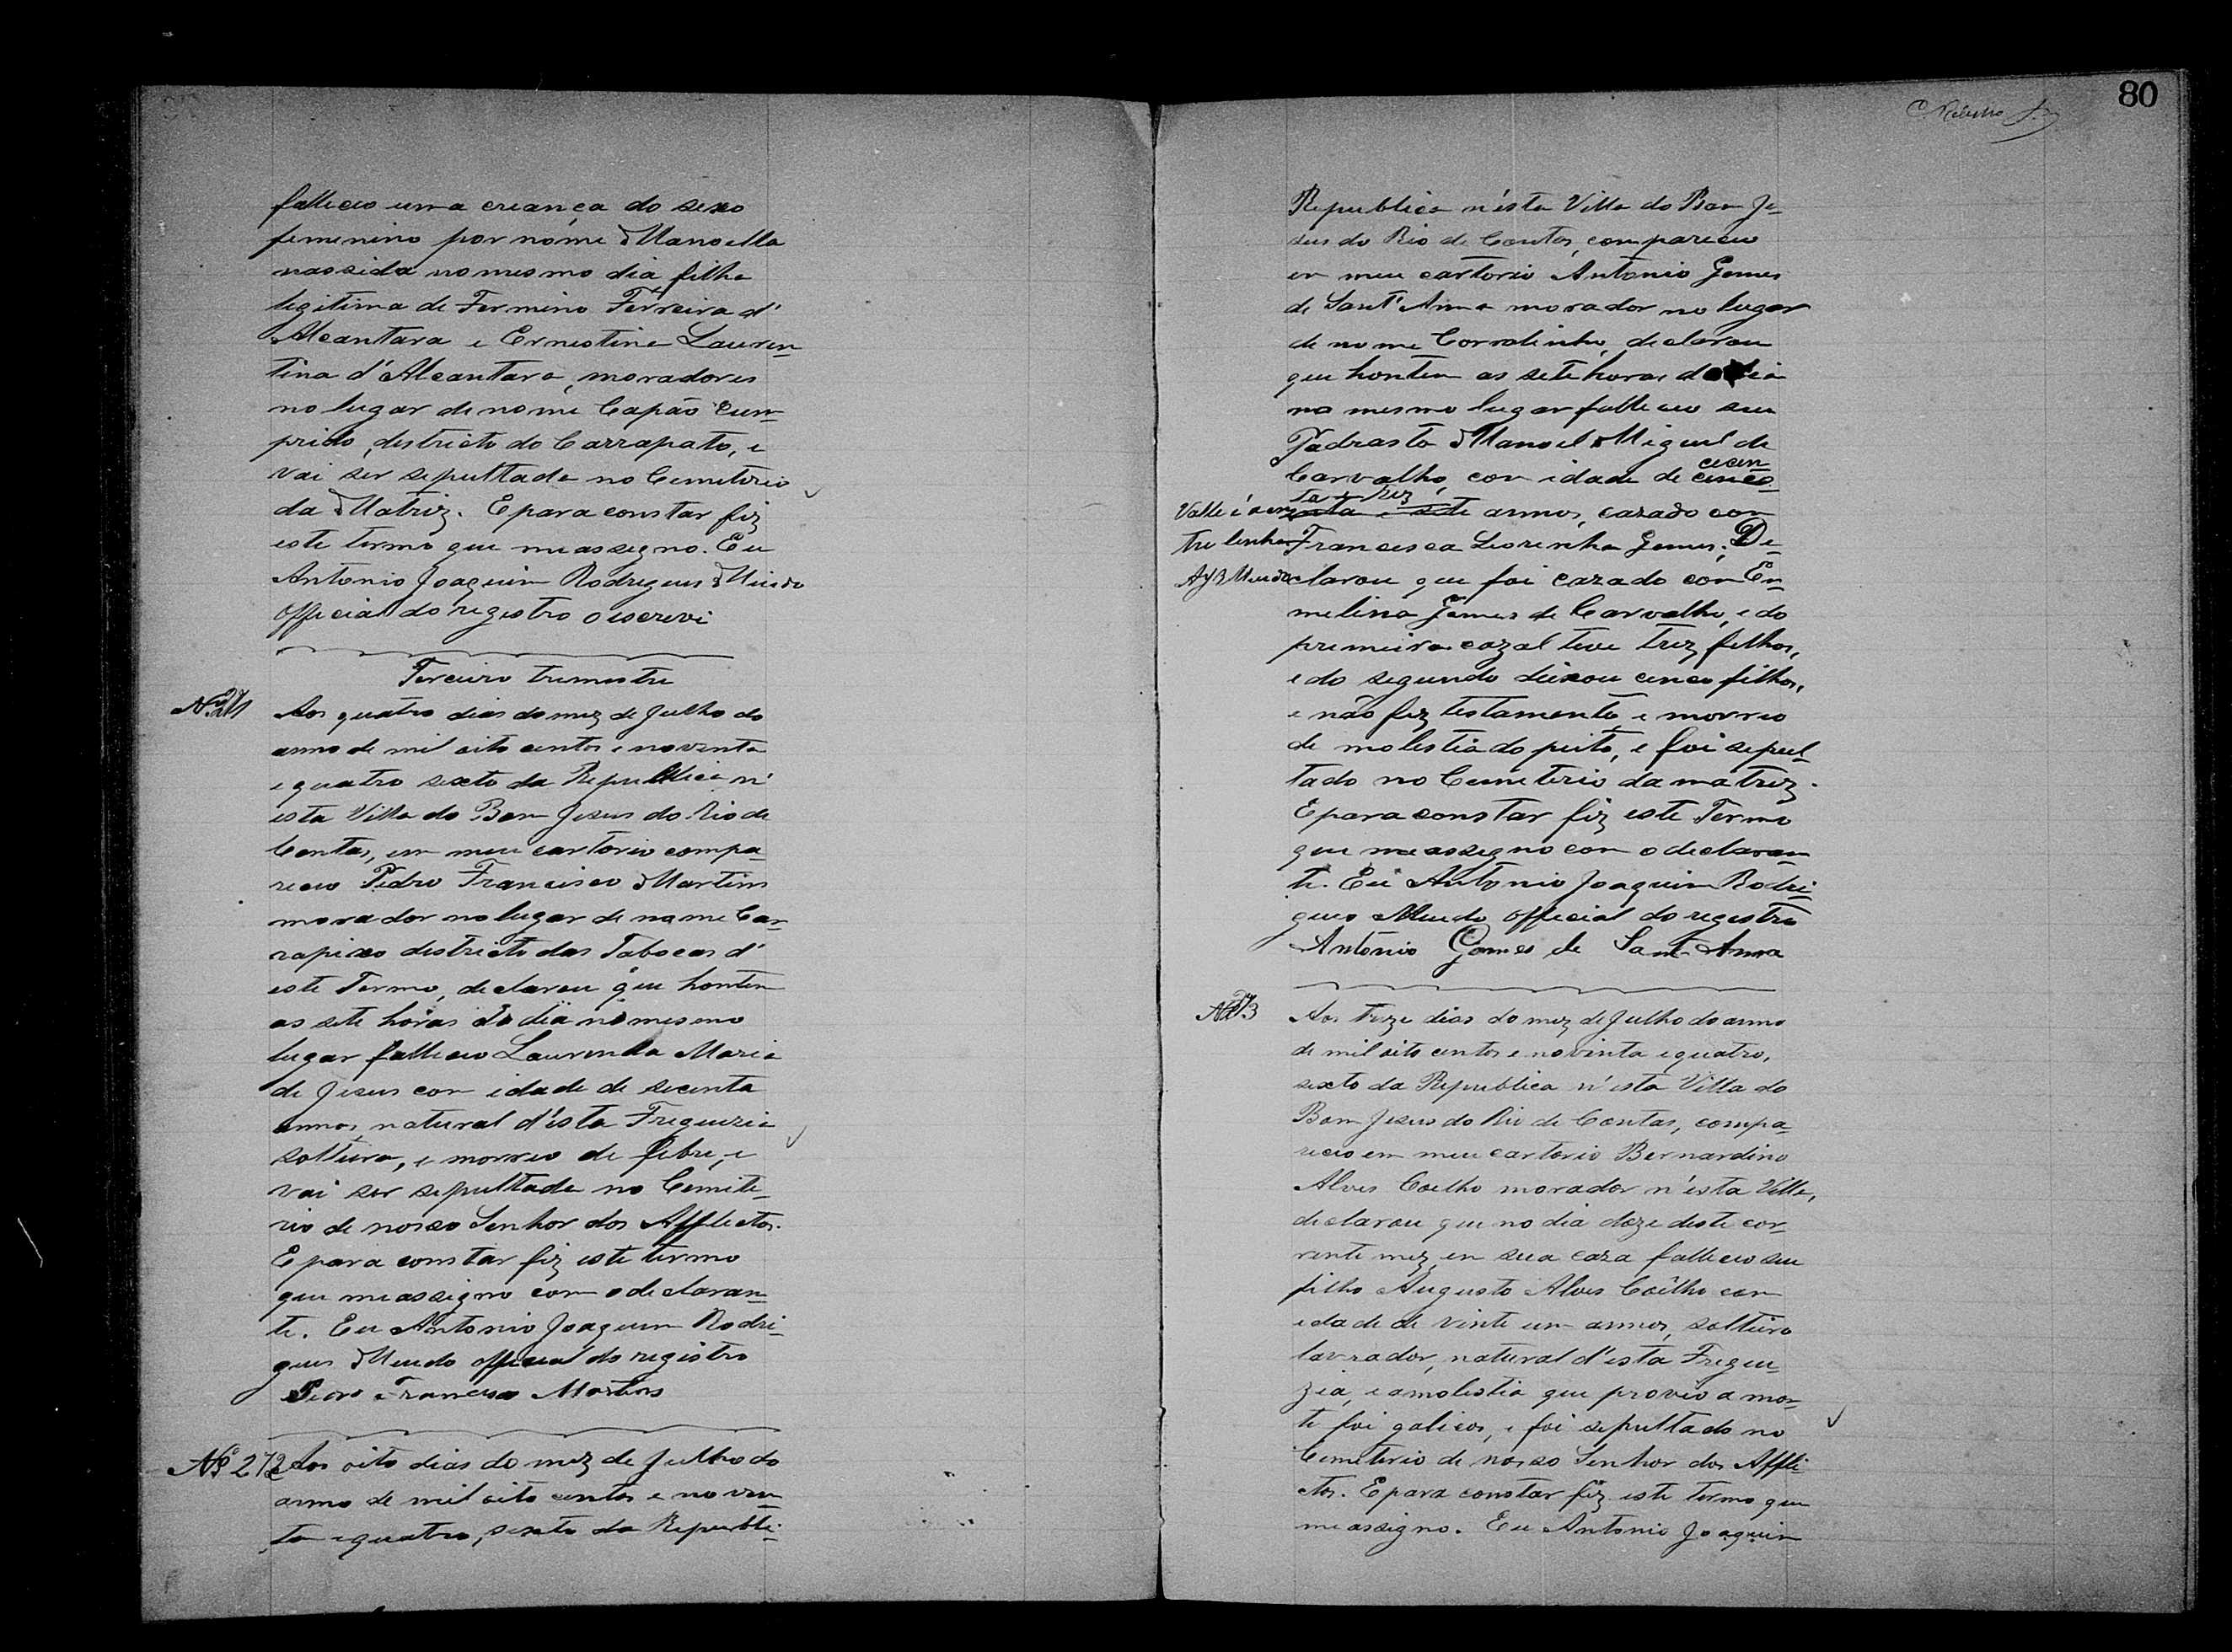 falleceo uma creança do sexo
femenino por nome Manoella
nassida no mesmo dia filha
legitima de Fermino Ferreira d'
Alcantara e Ernestina Lauren
tina d'Alcantara, moradores
no lugar de nome Capão Cum-
prido, destricto do Carrapato, e
vai ser sepultada no Cemeterio
da Matriz. E para constar fiz
este termo que me assigno. Eu
Antonio Joaquim Rodrigues Mendo
official do registro o escrevi
Terceiro trimestre
Nº 271
Aos quatro dias do mez de Julho do
anno de mil oito centos e noventa
e quatro sexto da Republica n'
esta Villa do Bom Jesus do Rio de
Contas, em meu cartorio compa-
receo Pedro Francisco Martins
morador no lugar de nome Car-
rapixo destricto das Tabocas d'
este Termo, declarou que hontem
as sete horas do dia no mesmo
lugar falleceo Maria
de Jesus com idade de secenta
annos natural d'esta Freguezia
solteira, e morreo de febre, e
vai ser sepultada no Cemite-
rio de nosso Senhor dos Afflictos.
E para constar fiz este termo
que me assigno com o declaran-
te. Eu Antonio Joaquim Rodri-
gues Mendo official do registro
Pedro Francisco Martins
Nº 272
Aos oito dias do mez de Julho do
anno de mil oito centos e noven-
ta e quatro, sexto da Republi-
80
Republica n'esta Villa do Bom Je-
sus do Rio de Contas, compareceu
em meu cartorio Antonio Gomes
de Sant'Anna morador no lugar
de nome Corralinho, declarou
que hontem as sete horas do dia
no mesmo lugar falleceo seu
Padrasto Manoel Miguel de
Carvalho, com idade de cinco-
cecen
ta e trez
enta e sete annos, cazado com
Valle a en
tre linha
AJR Mendo
Francisca Gomes; De-
clarou que foi cazado com Er-
melina Gomes de Carvalho, e do
primeiro cazal teve trez filhos,
e do segundo deixou cinco filhos,
e não fez testamento, e morreo
de molestia do peito, e foi sepul-
tado no Cemeterio da matriz.
E para constar fiz este Termo
que me assigno com o declaran-
te. Eu Antonio Joaquim Rodri-
gues Mendo official do registro
Antonio Gomes de Sant-Anna
Nº 273
Aos treze dias do mez de Julho do anno
de mil oito centos e noventa e quatro,
sexto da Republica n'esta Villa do
Bom Jesus do Rio de Contas, compa-
receo em meu cartorio Bernardino
Alves Coelho morador n'esta Villa,
declarou que no dia doze deste cor-
rente mez, em sua caza falleceo seu
filho Augusto Alves Coêlho com
idade de vinte um annos, solteiro
lavrador, natural d'esta Fregue
zia, e a molestia que proveio a mor-
te foi galicos, e foi sepultado no
Cemeterio de nosso Senhor dos Affli-
ctos. E para constar fiz este termo que
me assigno. Eu Antonio Joaquim